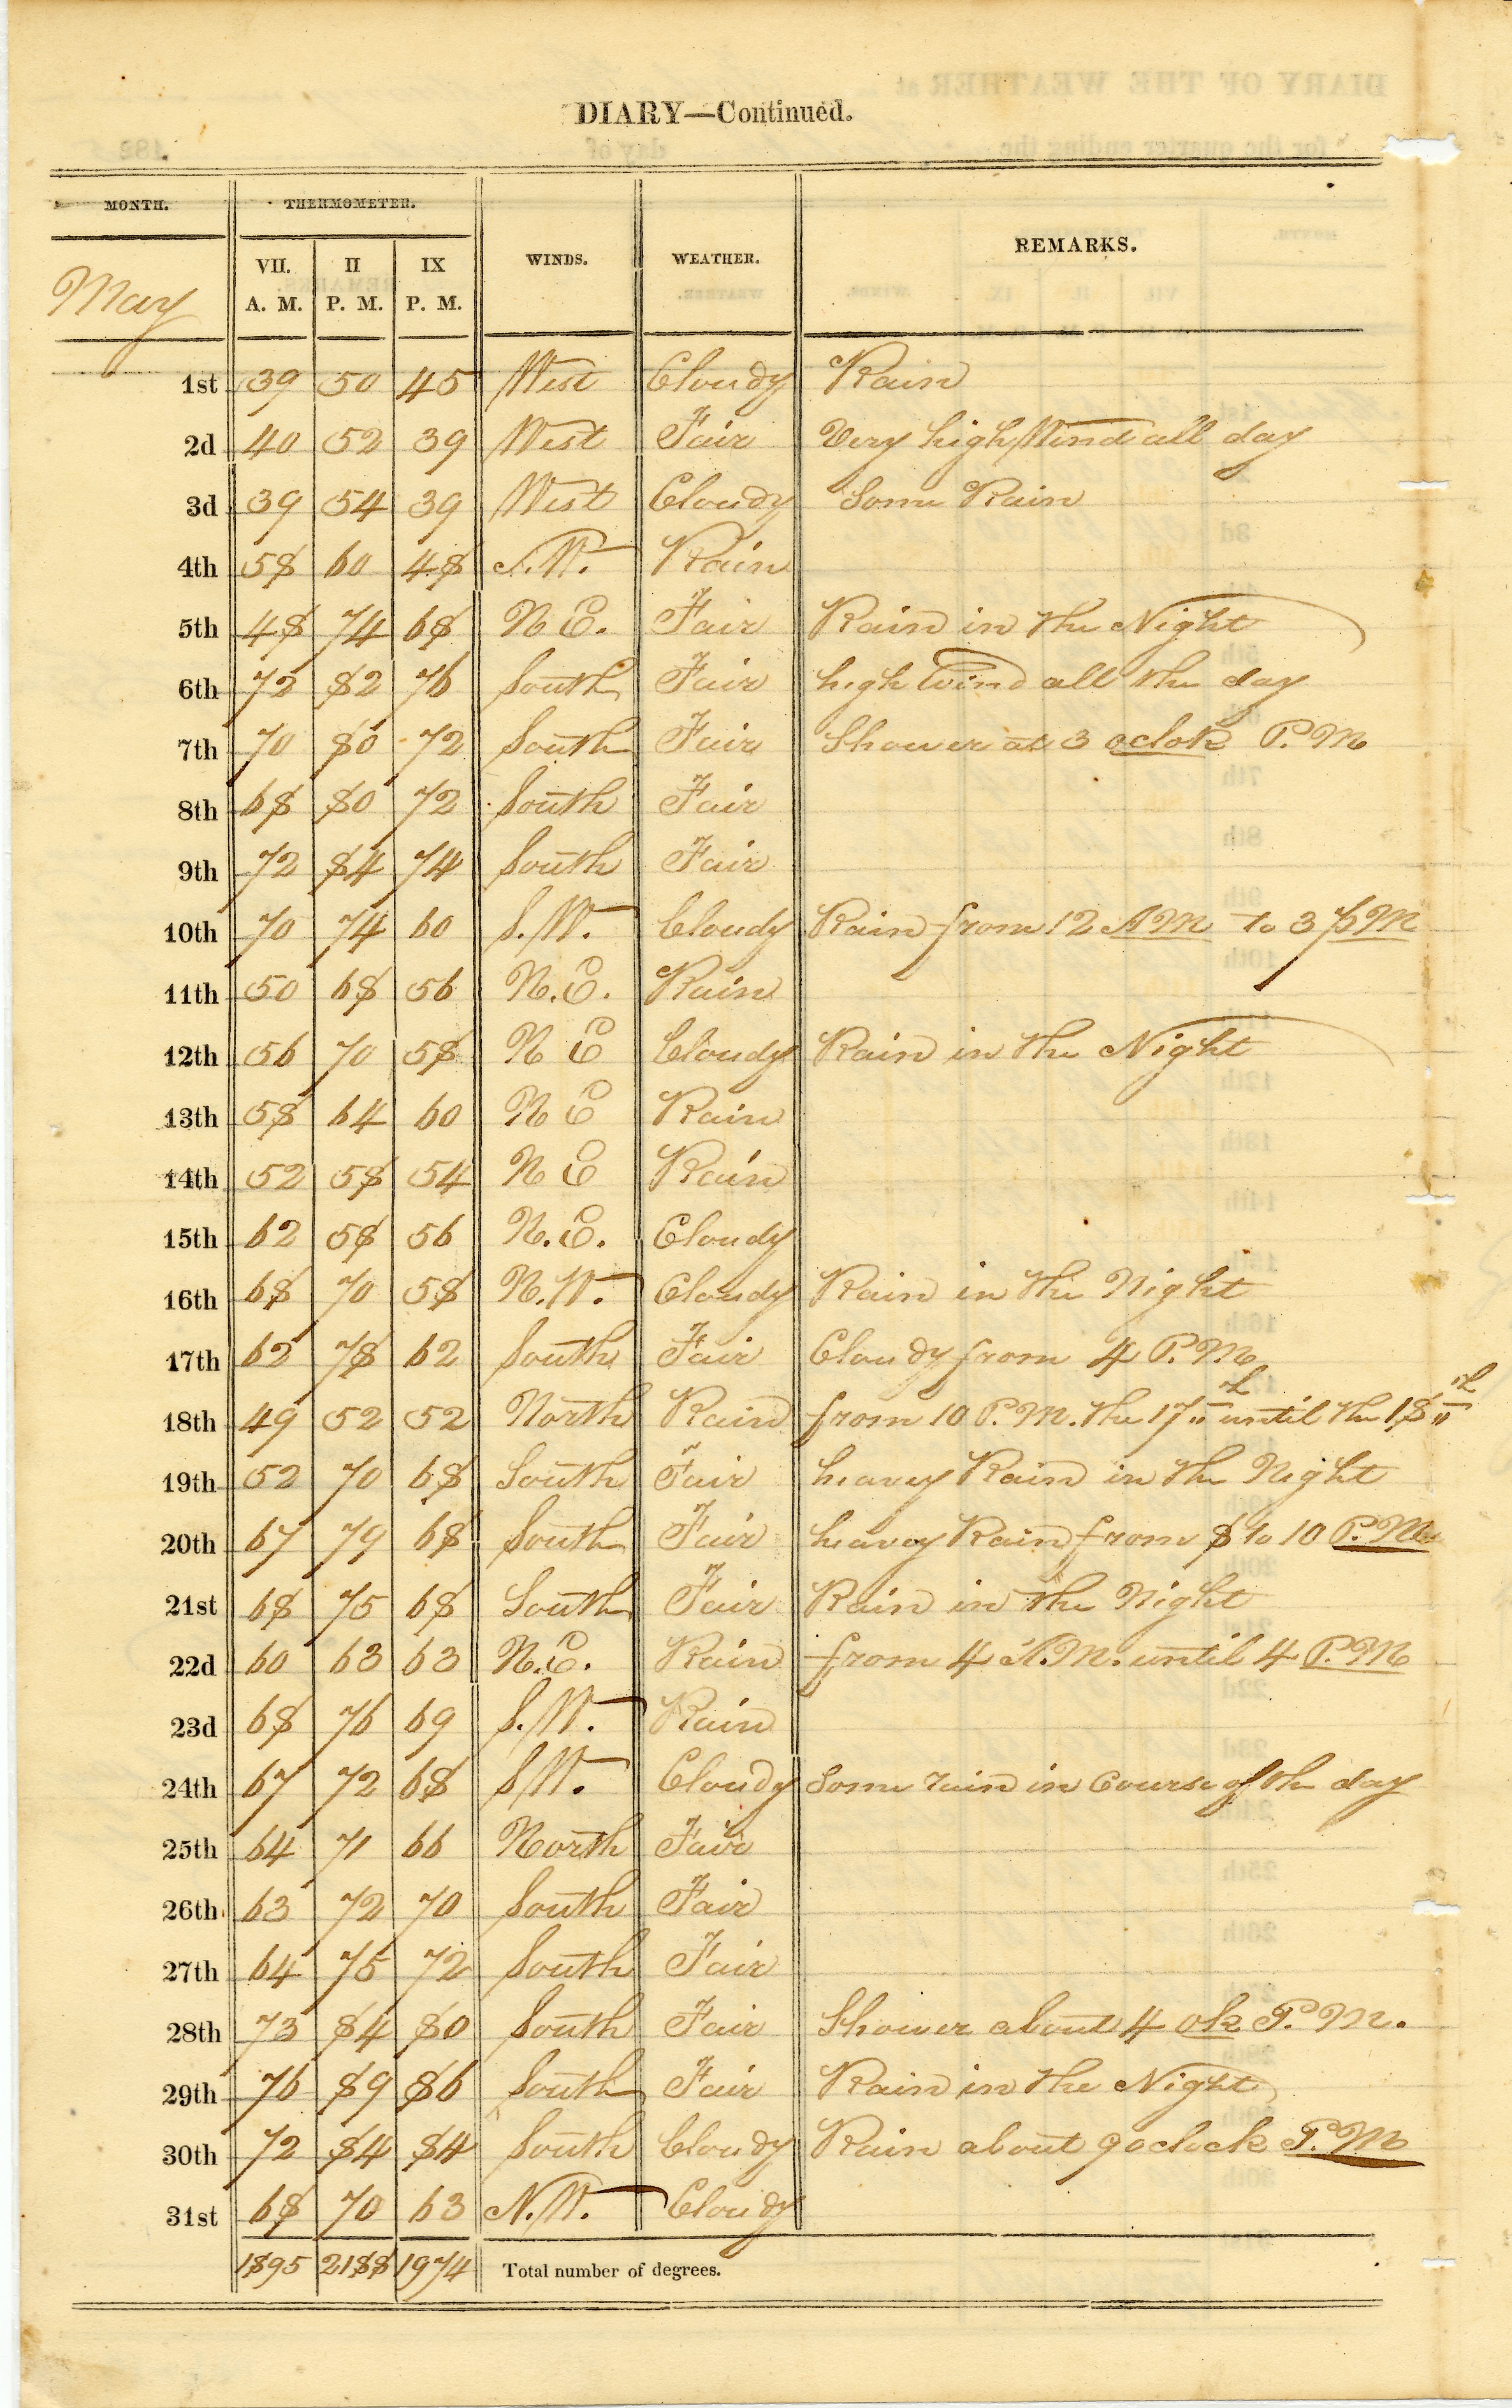 DIARY—Continued.
MONTH. THERMOMETER. WINDS. WEATHER. REMARKS.
VII. A. M. II P. M. IX P. M.
May
1st 39 50 45 West Cloudy Rain
2d 40 52 39 West Fair Very high Wind all day
3d 39 54 39 West Cloudy Some Rain
4th 58 60 48 N.W. Rain
5th 48 74 68 N E. Fair Rain in the Night
6th 72 82 76 South Fair high Wind all the day
7th 70 80 72 South Fair Shower at 3 oclok P.M
8th 68 80 72 South Fair
9th 72 84 74 South Fair
10th 70 74 60 S.W. Cloudy Rain from 12 AM to 3 PM
11th 50 68 56 N.E. Rain
12th 56 70 58 N E Cloudy Rain in the Night
13th 58 64 60 N E Rain
14th 52 58 54 N E Rain
15th 62 58 56 N.E. Cloudy
16th 68 70 58 N.W. Cloudy Rain in the Night
17th 62 78 62 South Fair Cloudy from 4 P.M
18th 49 52 52 North Rain from 10 P.M. the 17th until the 18th
19th 52 70 68 South Fair heavey Rain in the Night
20th 67 79 68 South Fair heavey Rain from 8 to 10 P.M
21st 68 75 68 South Fair Rain in the Night
22d 60 63 63 N.E. Rain from 4 A.M. until 4 P.M
23d 68 76 69 S.W. Rain
24th 67 72 68 S.W. Cloudy Some rain in Course of the day
25th 64 71 66 North Fair
26th 63 72 70 South Fair
27th 64 75 72 South Fair
28th 73 84 80 South Fair Shower about 4 ok P.M.
29th 76 89 86 South Fair Rain in the Night
30th 72 84 84 South Cloudy Rain about 9 oclock P.M
31st 68 70 63 N.W. Cloudy
1895 2188 1974 Total number of degrees.